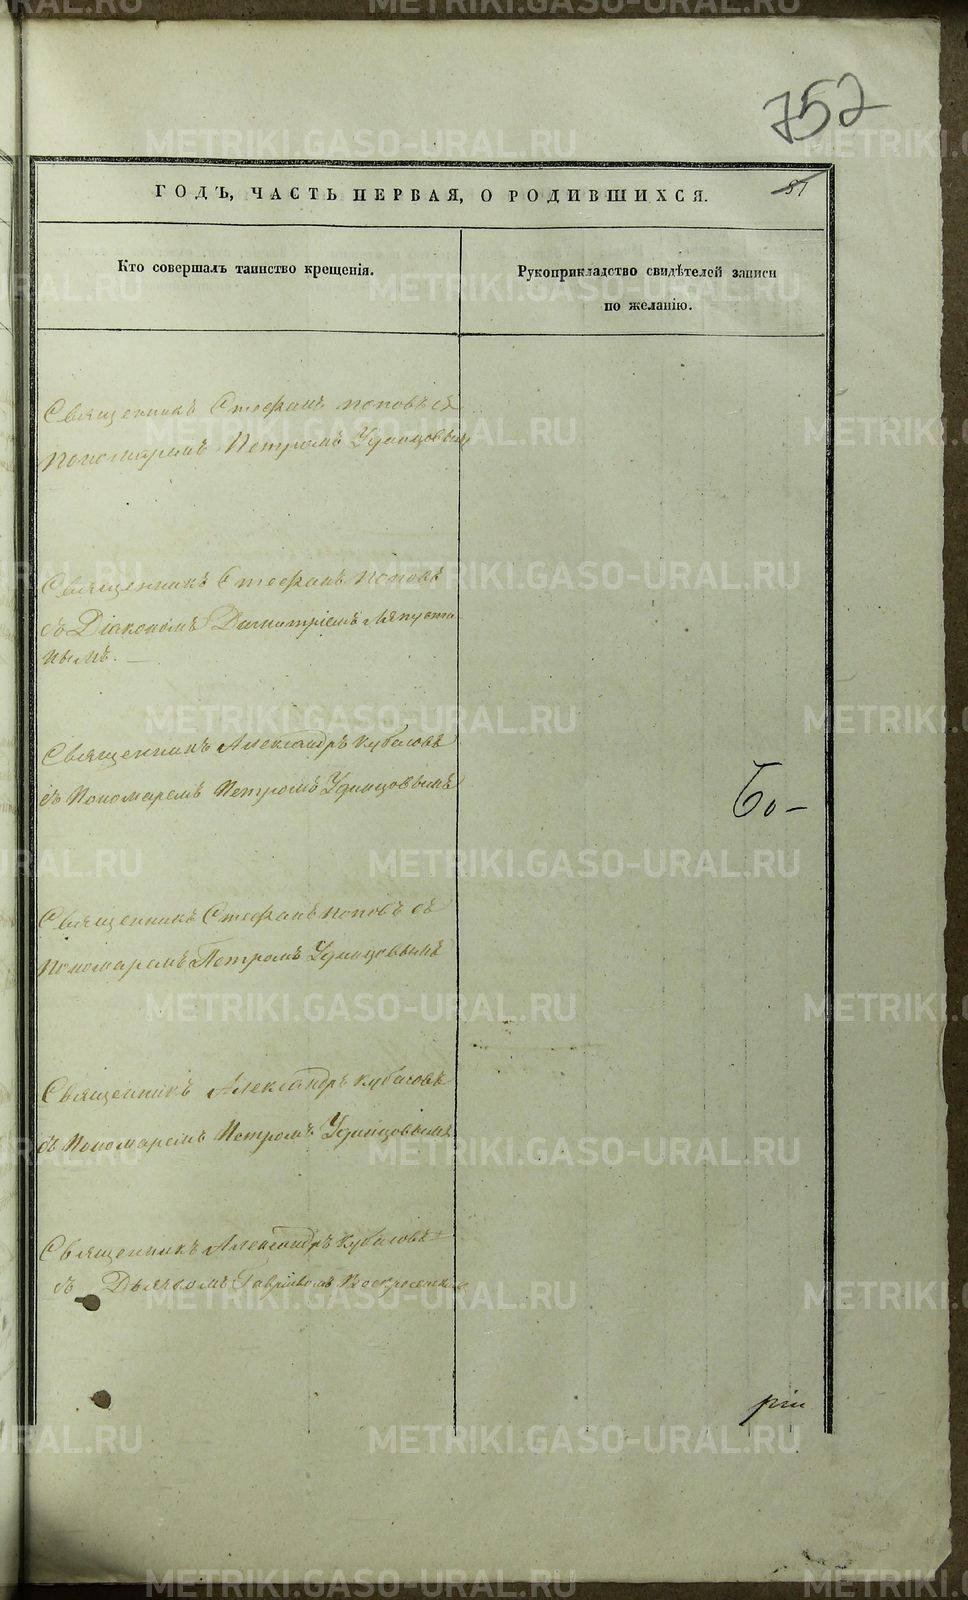 752
ГОДЪ, ЧАСТЬ ПЕРВАЯ, О РОДИВШИХСЯ.
57
Кто совершалъ таинство крещенія.
Рукоприкладство свидѣтелей записи
по желанію.
Священникъ Стефанъ Поповъ съ
Пономаремъ Петромъ Удинцовым
Священникъ Стефанъ Поповъ
съ Діакономъ Димитріемъ Ляпусти
нымъ.
Священникъ Александръ Кубасовъ
съ Пономаремъ Петромъ Удинцовымъ
Священникъ Стефанъ Поповъ съ
Пономаремъ Петромъ Удинцовымъ
Священникъ Александръ Кубасовъ
съ Пономаремъ Петромъ Удинцовымъ
Священникъ Александръ Кубасовъ
съ Дьячкомъ Гавріиломъ
Бо-
ріи
METRIKI.GASO-URAL.RU